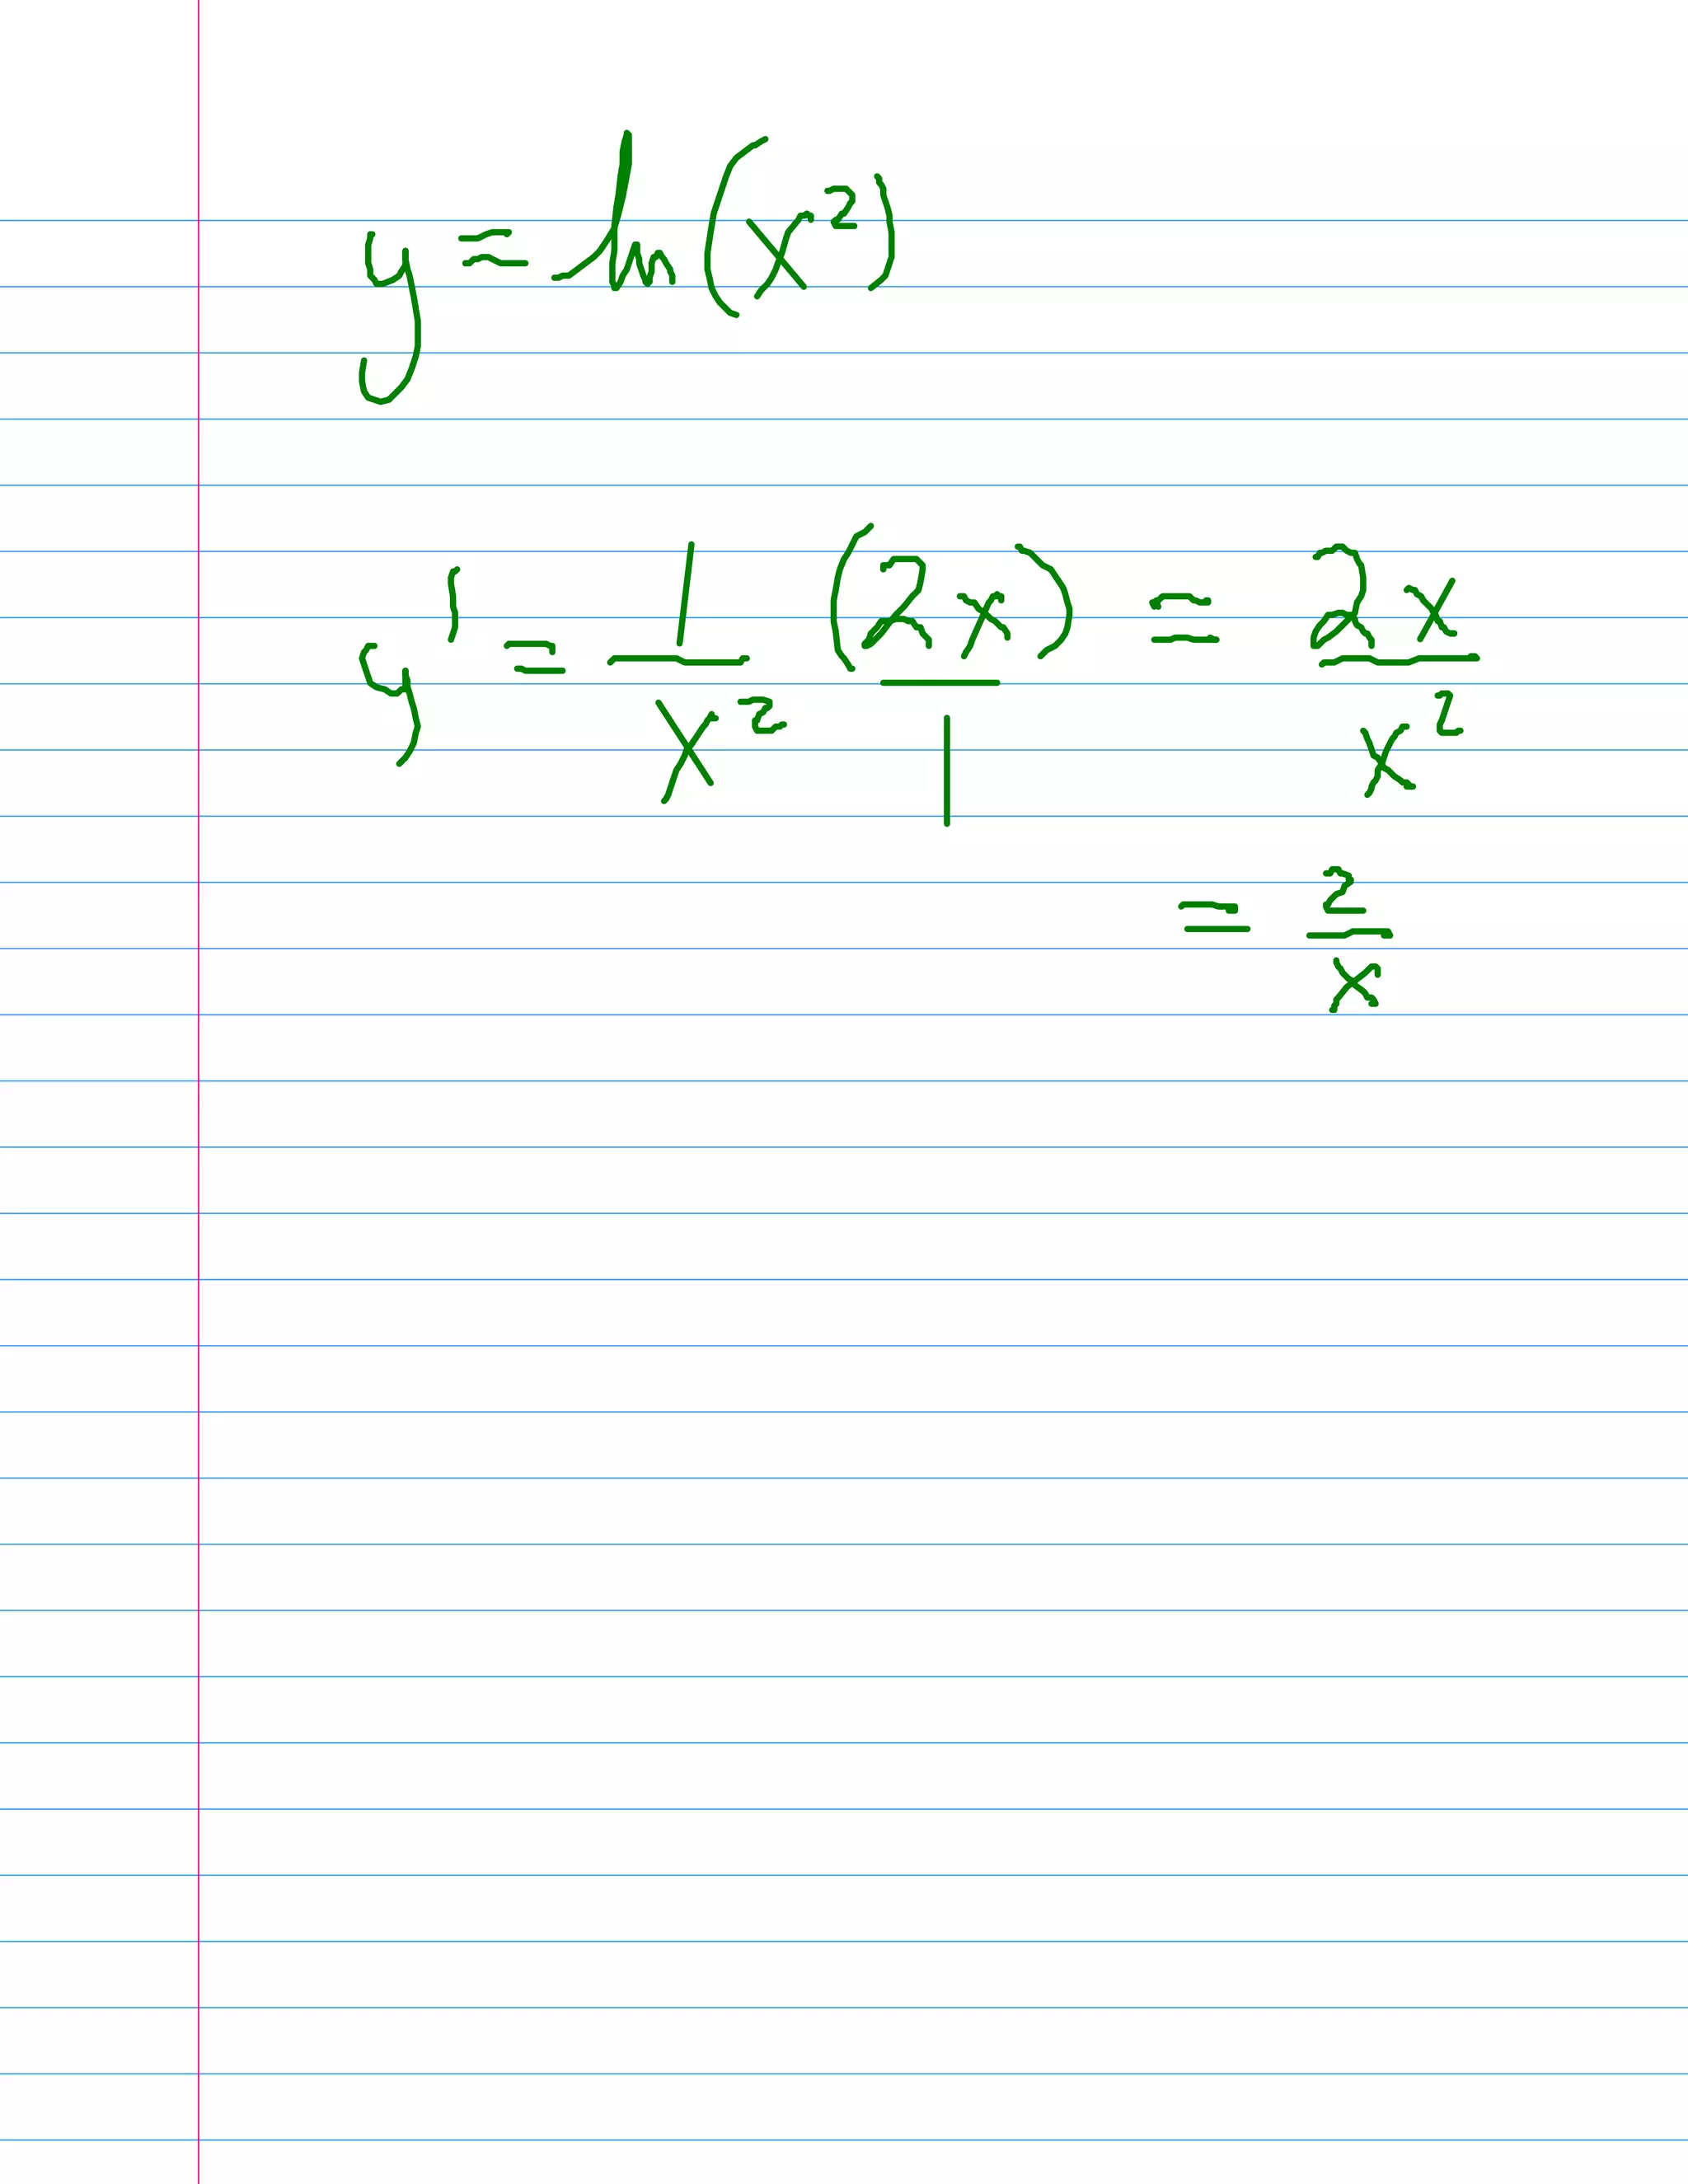 y = ln(x²)
y' = 1/x² (2x)/1 = 2x/x²
= 2/x